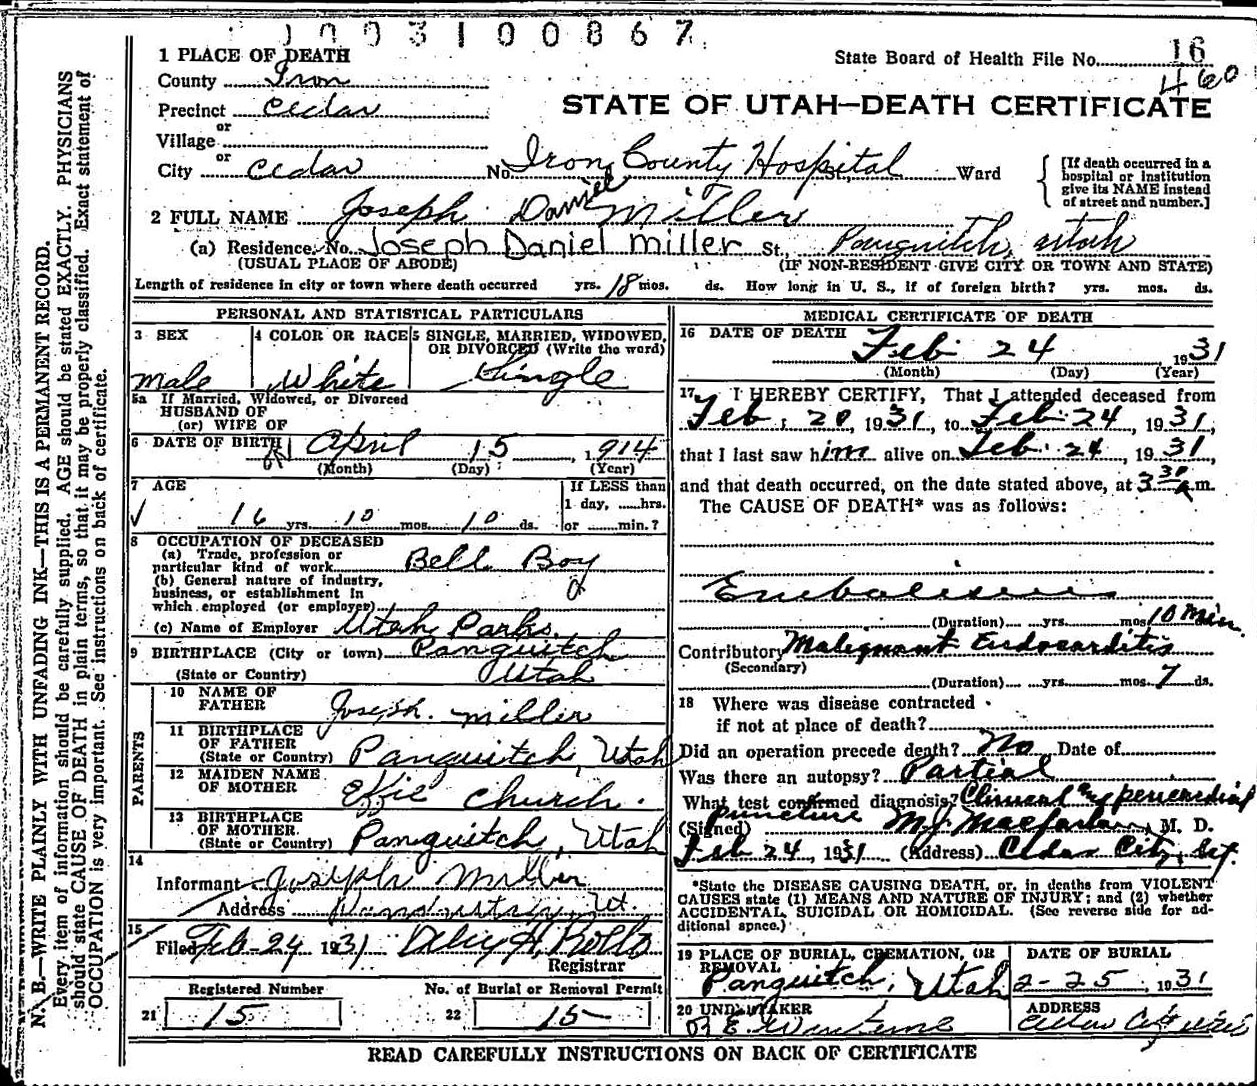 1003100867
1 PLACE OF DEATH
State Board of Health File No. 16
460
County Iron
STATE OF UTAH—DEATH CERTIFICATE
Precinct Cedar
or
Village
or
City Cedar No. Iron County Hospital St., Ward
[If death occurred in a
hospital or institution
give its NAME instead
of street and number.]
2 FULL NAME Joseph Daniel Miller
(a) Residence. No. Joseph Daniel Miller St. Panguitch, Utah
(USUAL PLACE OF ABODE) (IF NON-RESIDENT GIVE CITY OR TOWN AND STATE)
Length of residence in city or town where death occurred yrs. 18 mos. ds. How long in U. S., if of foreign birth? yrs. mos. ds.
PERSONAL AND STATISTICAL PARTICULARS
3 SEX
Male
4 COLOR OR RACE
White
5 SINGLE, MARRIED, WIDOWED,
OR DIVORCED (Write the word)
Single
5a If Married, Widowed, or Divorced
HUSBAND OF
(or) WIFE OF
6 DATE OF BIRTH April 15, 1914
(Month) (Day) (Year)
7 AGE
16 yrs. 10 mos. 10 ds.
If LESS than
1 day, ......hrs.
or ......min.?
8 OCCUPATION OF DECEASED
(a) Trade, profession or
particular kind of work Bell Boy
(b) General nature of industry,
business, or establishment in
which employed (or employer)
(c) Name of Employer Utah Parks
9 BIRTHPLACE (City or town) Panguitch
(State or Country) Utah
PARENTS
10 NAME OF
FATHER Joseph Miller
11 BIRTHPLACE
OF FATHER
(State or Country) Panguitch, Utah
12 MAIDEN NAME
OF MOTHER Effie Church.
13 BIRTHPLACE
OF MOTHER
(State or Country) Panguitch, Utah
14
Informant Joseph Miller
Address Panguitch, Ut.
15
Filed Feb-24 1931
Registrar
Registered Number
21 15
No. of Burial or Removal Permit
22 15
MEDICAL CERTIFICATE OF DEATH
16 DATE OF DEATH Feb 24 1931
(Month) (Day) (Year)
17 I HEREBY CERTIFY, That I attended deceased from
Feb 20, 1931, to Feb 24, 1931,
that I last saw him alive on Feb 24, 1931,
and that death occurred, on the date stated above, at 3 30 a.m.
The CAUSE OF DEATH* was as follows:
Embolism
(Duration) yrs. mos. 10 Min.
Contributory Malignant Endocarditis
(Secondary)
(Duration) yrs. mos. 7 ds.
18 Where was disease contracted
if not at place of death?
Did an operation precede death? No Date of
Was there an autopsy? Partial
What test confirmed diagnosis? Clinical and pericardial
puncture
(Signed) M.J. Macfarlane, M. D.
Feb 24, 1931 (Address) Cedar City, Ut.
*State the DISEASE CAUSING DEATH, or, in deaths from VIOLENT
CAUSES state (1) MEANS AND NATURE OF INJURY; and (2) whether
ACCIDENTAL, SUICIDAL OR HOMICIDAL. (See reverse side for ad-
ditional space.)
19 PLACE OF BURIAL, CREMATION, OR
REMOVAL
Panguitch, Utah
DATE OF BURIAL
2-25, 1931
20 UNDERTAKER
ADDRESS
Cedar City
READ CAREFULLY INSTRUCTIONS ON BACK OF CERTIFICATE
N. B.—WRITE PLAINLY WITH UNFADING INK—THIS IS A PERMANENT RECORD.
Every item of information should be carefully supplied. AGE should be stated EXACTLY. PHYSICIANS
should state CAUSE OF DEATH in plain terms, so that it may be properly classified. Exact statement of
OCCUPATION is very important. See instructions on back of certificate.